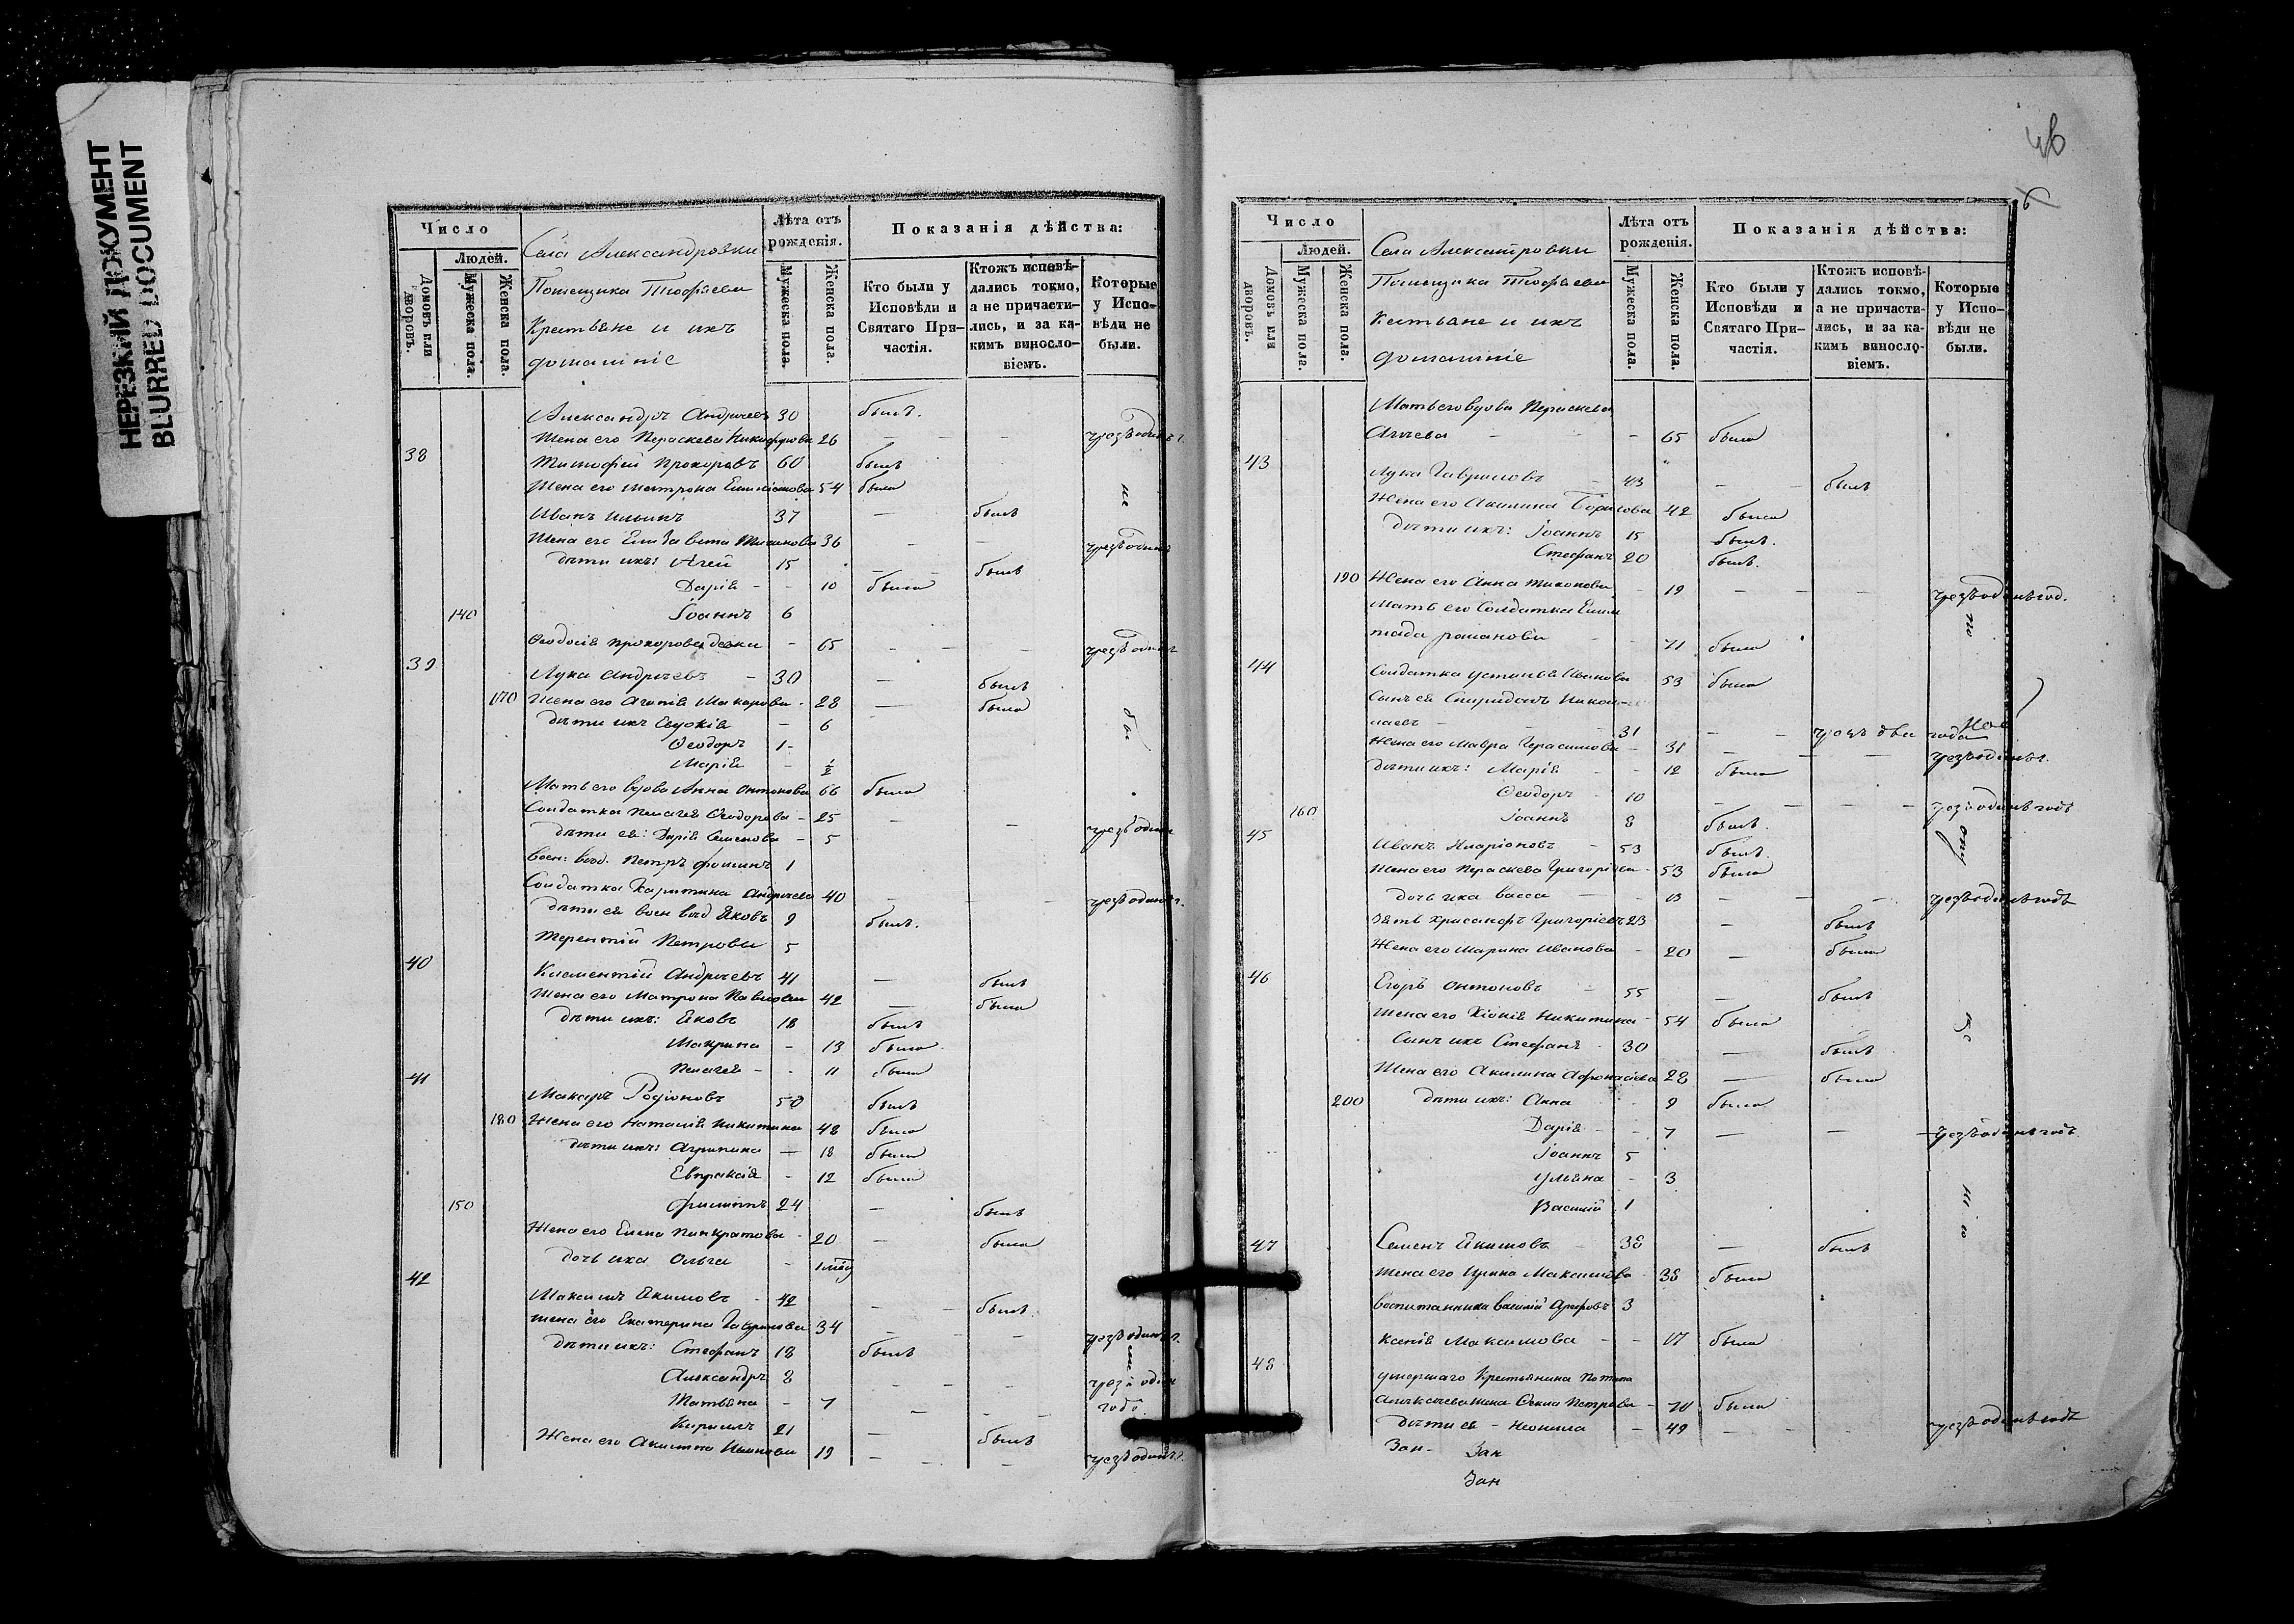 НЕРЕЗКИЙ ДОКУМЕНТ
BLURRED DOCUMENT
Число
Людей.
Домовъ или дворовъ.
Мужеска пола.
Женска пола.
Села Александровки
Помещика
Крестьяне и ихъ
домашніе
Лѣта отъ рожденія.
Мужеска пола.
Женска пола.
Показанія дѣйства:
Кто были у Исповѣди и Святаго Причастія.
Ктожъ исповѣдались токмо, а не причастились, и за какимъ винословіемъ.
Которые у Исповѣди не были.
Александръ Андреевъ 30 былъ.
Жена его Пераскева Никифорова 26 — — — чрезъ одинъ г.
38
Тимофей Прохоровъ 60 былъ
Жена его Матрона 54 была
Иванъ Ильинъ 37 — былъ
не
Жена его Елизавета 36 — — чрезъ одинъ
дѣти ихъ: Агей 15 — — былъ
Дарія - - 10 была
140 Іоаннъ 6
Ѳеодосія Прохорова - 65 - - — чрезъ одинъ
39
Лука Андреевъ - 30 — былъ
170 Жена его Агапія Макарова - 28 — была
дѣти ихъ Евдокія - 6
Ѳеодоръ 1 -
Марія - ½
бы
Мать его вдова Анна Антонова 66 была
Солдатка Пелагея Ѳеодорова - 25 - — чрезъ одинъ
дѣти ея: Дарія Семенова - 5
воен: восп. Петръ Фоминъ 1
Солдатка Харитина Андреева 40 - - - чрезъ одинъ г.
дѣти ея воен восп Яковъ 9 былъ.
Терентій Петровы 5
40
Климентій Андреевъ 41 — былъ
Жена его Матрона Павлова 42 — была
дѣти ихъ: Яковъ 18 былъ
Макрина - 13 была
Пелагея - - 11 была
41
Макаръ Родіоновъ 50 былъ
180 Жена его Наталія Никитина 48 была
дѣти ихъ: Агрипина — 18 была
Евпраксія - 12 была
150 Филиппъ 24 — былъ
Жена его Елена Панкратова - 20 — была
дочь ихъ Ольга -
42
Максимъ Якимовъ - 42 — - былъ
жена его Екатерина Гаврилова 34 - — чрезъ одинъ г.
дѣти ихъ: Стефанъ 18 былъ
Александръ 8 - - - чрезъ одинъ
Татьяна - 7 - - - годъ
Кириллъ 21 — былъ
Жена его Акилина Иванова 19 - - — чрезъ одинъ г.
46
6
Число
Людей.
Домовъ или дворовъ.
Мужеска пола.
Женска пола.
Села Александровки
Помещика
Крестьяне и ихъ
домашніе
Лѣта отъ рожденія.
Мужеска пола.
Женска пола.
Показанія дѣйства:
Кто были у Исповѣди и Святаго Причастія.
Ктожъ исповѣдались токмо, а не причастились, и за какимъ винословіемъ.
Которые у Исповѣди не были.
Мать его вдова Пераскева
Агеева - - 65 была
43
Лука Гавриловъ - 43 - - былъ
Жена его Акилина Борисова 42 была
дѣти ихъ: Іоаннъ 15 былъ.
Стефанъ 20 былъ.
190 Жена его Анна Тихонова - 19 - - - чрезъ одинъ год.
Мать его Солдатка
Романова - - 71 была
44
Солдатка Устинья Иванова 53 была
Сынъ ея Спиридонъ Никол-
аевъ - - 31 - - чрезъ два года
Жена его Мавра Герасимова - 31 - — - чрезъ одинъ г.
дѣти ихъ: Марія - - 12 была
Ѳеодоръ - 10 - - - - чрезъ одинъ годъ
160 Іоаннъ 8 былъ.
45
Иванъ Иларіоновъ - 53 былъ.
Жена его Пераскева Григорьева - 53 была
дочь ихъ Васса — - 13 - — - чрезъ одинъ годъ
Зять Хрисанфъ Григоріевъ 23 — былъ
Жена его Марина Иванова - 20 — была
46
Егоръ Антоновъ - 55 — былъ
Жена его Хіонія Никитина - 54 была
Сынъ ихъ Стефанъ - 30 — былъ
Жена его Акилина Афонасіева 28 — была
200 дѣти ихъ: Анна - - 9 была
Дарія - - 7 — — — чрезъ одинъ годъ
Іоаннъ 5
Ульяна - 3
Василій 1
47
Семенъ Якимовъ - 38 — былъ
Жена его Ирина Максимова - 38 была
воспитанникъ Василій 3
Ксенія Максимова - - 17 была
48
умершаго Крестьянина Потапа
Алексеева жена Ѳекла Петрова - 70 была
дѣти ея - Неонила - 49 - - - чрезъ одинъ годъ
Зак- Зак
Зак